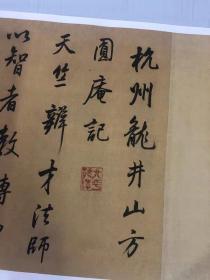 杭州龍井山方
圓庵記
天竺辯才法師
以智者教傳